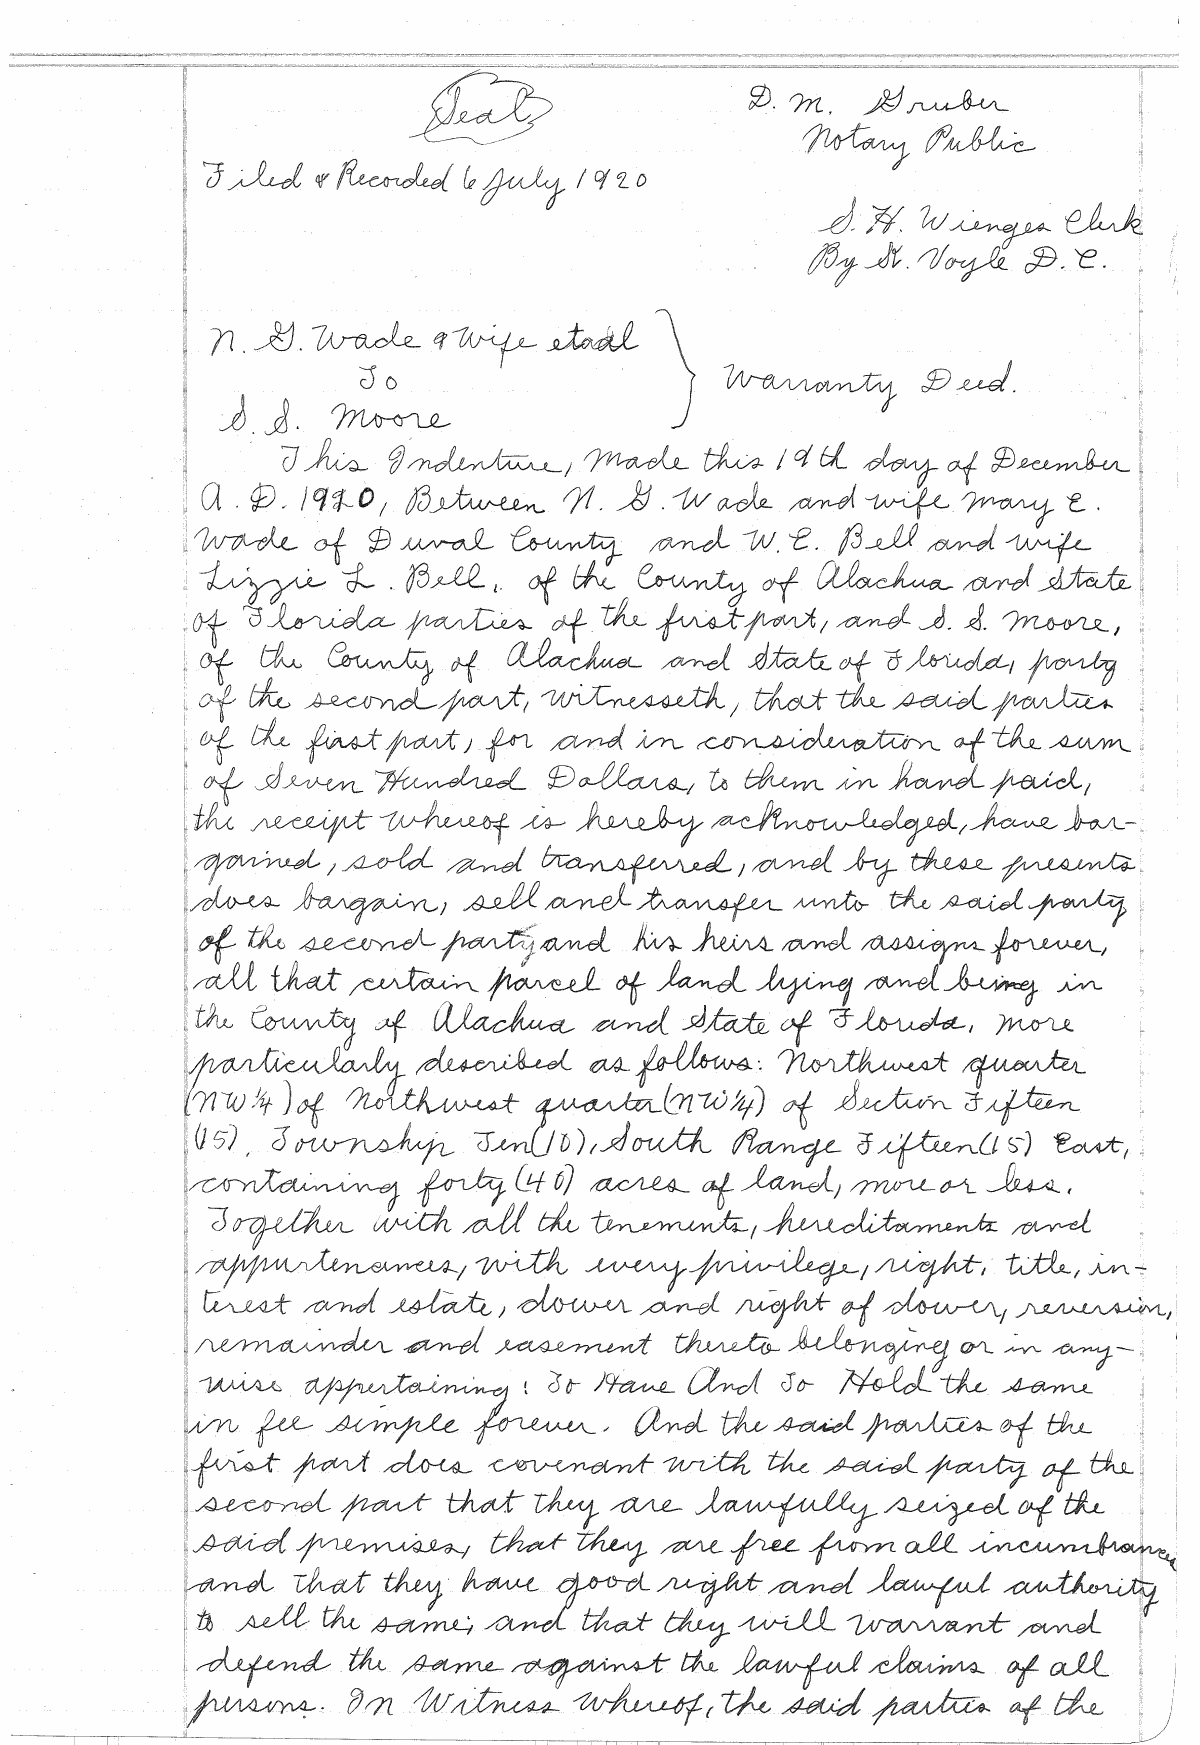 Seal
D. M. Gruber
Notary Public
Filed & Recorded 6 July 1920
S. H. Wienges Clerk
By St. Voyle D. C.
N. G. Wade & Wife etaal
To
S. S. Moore
Warranty Deed.
This Indenture, Made this 19th day of December
A. D. 1920, Between N. G. Wade and wife Mary E.
Wade of Duval County and W. E. Bell and wife
Lizzie L. Bell, of the County of Alachua and State
of Florida parties of the first part, and S. S. Moore,
of the County of Alachua and State of Florida, party
of the second part, witnesseth, that the said parties
of the first part, for and in consideration of the sum
of Seven Hundred Dollars, to them in hand paid,
the receipt whereof is hereby acknowledged, have bar-
gained, sold and transferred, and by these presents
does bargain, sell and transfer unto the said party
of the second party and his heirs and assigns forever,
all that certain parcel of land lying and being in
the County of Alachua and State of Florida, more
particularly described as follows: Northwest quarter
(NW 1/4) of Northwest quarter (NW 1/4) of Section Fifteen
(15), Township Ten (10), South Range Fifteen (15) East,
containing forty (40) acres of land, more or less.
Together with all the tenements, hereditaments and
appurtenances, with every privilege, right, title, in-
terest and estate, dower and right of dower, reversion,
remainder and easement thereto belonging or in any-
wise appertaining: To Have And To Hold the same
in fee simple forever. And the said parties of the
first part does covenant with the said party of the
second part that they are lawfully seized of the
said premises, that they are free from all incumbrances
and that they have good right and lawful authority
to sell the same; and that they will warrant and
defend the same against the lawful claims of all
persons. In Witness whereof, the said parties of the